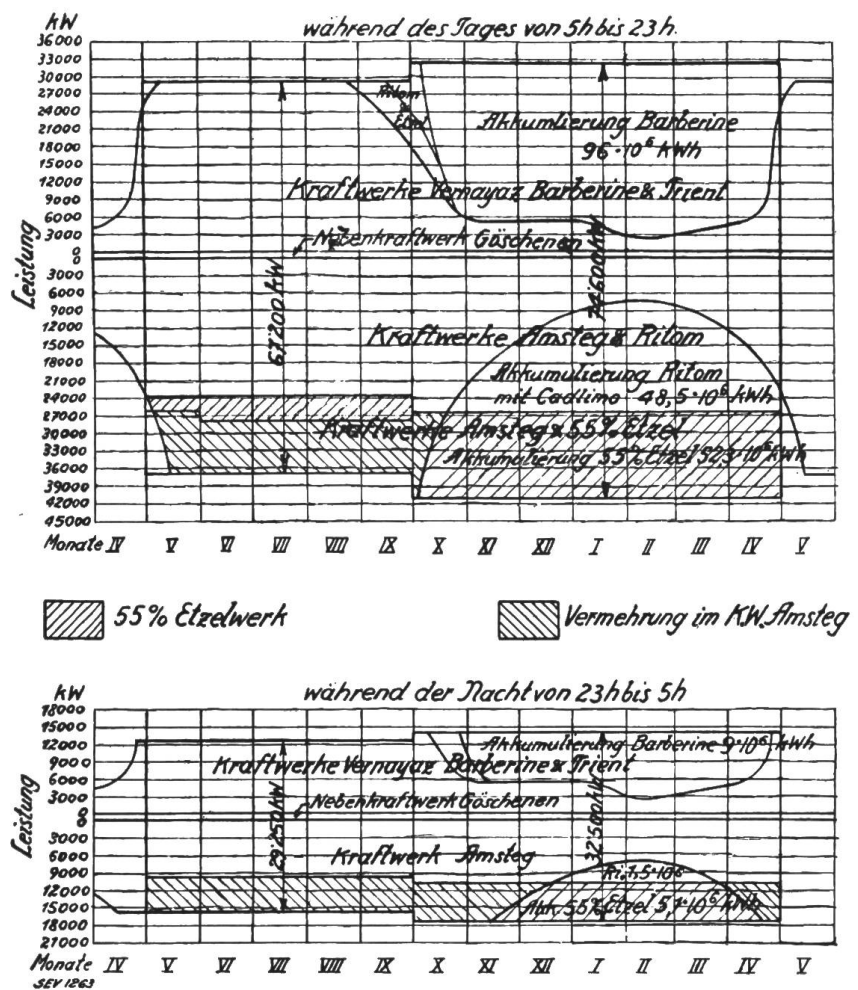 kW
während des Tages von 5h bis 23h.
36000
33000
30000
27000
24000
21000
18000
15000
12000
9000
6000
3000
0
0
3000
6000
9000
12000
15000
18000
21000
24000
27000
30000
33000
36000
39000
42000
45000
Leistung
Ritom
Etzel
Akkumlierung Barberine
96·10⁶ kWh
Kraftwerke Vernayaz Barberine & Trient
Nebenkraftwerk Göschenen
67'200 kW
74'600 kW
Kraftwerke Amsteg & Ritom
Akkumulierung Ritom
mit Cadlimo 48,5·10⁶ kWh
Kraftwerke Amsteg & 55% Etzel
Akkumulierung 55% Etzel 52,3·10⁶ kWh
Monate IV V VI VII VIII IX X XI XII I II III IV V
55% Etzelwerk
Vermehrung im K.W. Amsteg
kW
während der Nacht von 23h bis 5h
18000
15000
12000
9000
6000
3000
0
0
3000
6000
9000
12000
15000
18000
21000
Leistung
Akkumulierung Barberine 9·10⁶ kWh
Kraftwerke Vernayaz Barberine & Trient
Nebenkraftwerk Göschenen
29'250 kW
32'500 kW
Kraftwerk Amsteg
Ri. 1,5·10⁶
Akk. 55% Etzel 5,1·10⁶ kWh
Monate IV V VI VII VIII IX X XI XII I II III IV V
SEV 1263